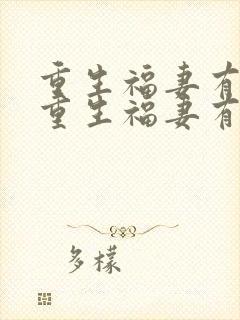 重生福妻有
重生福妻有
多樣